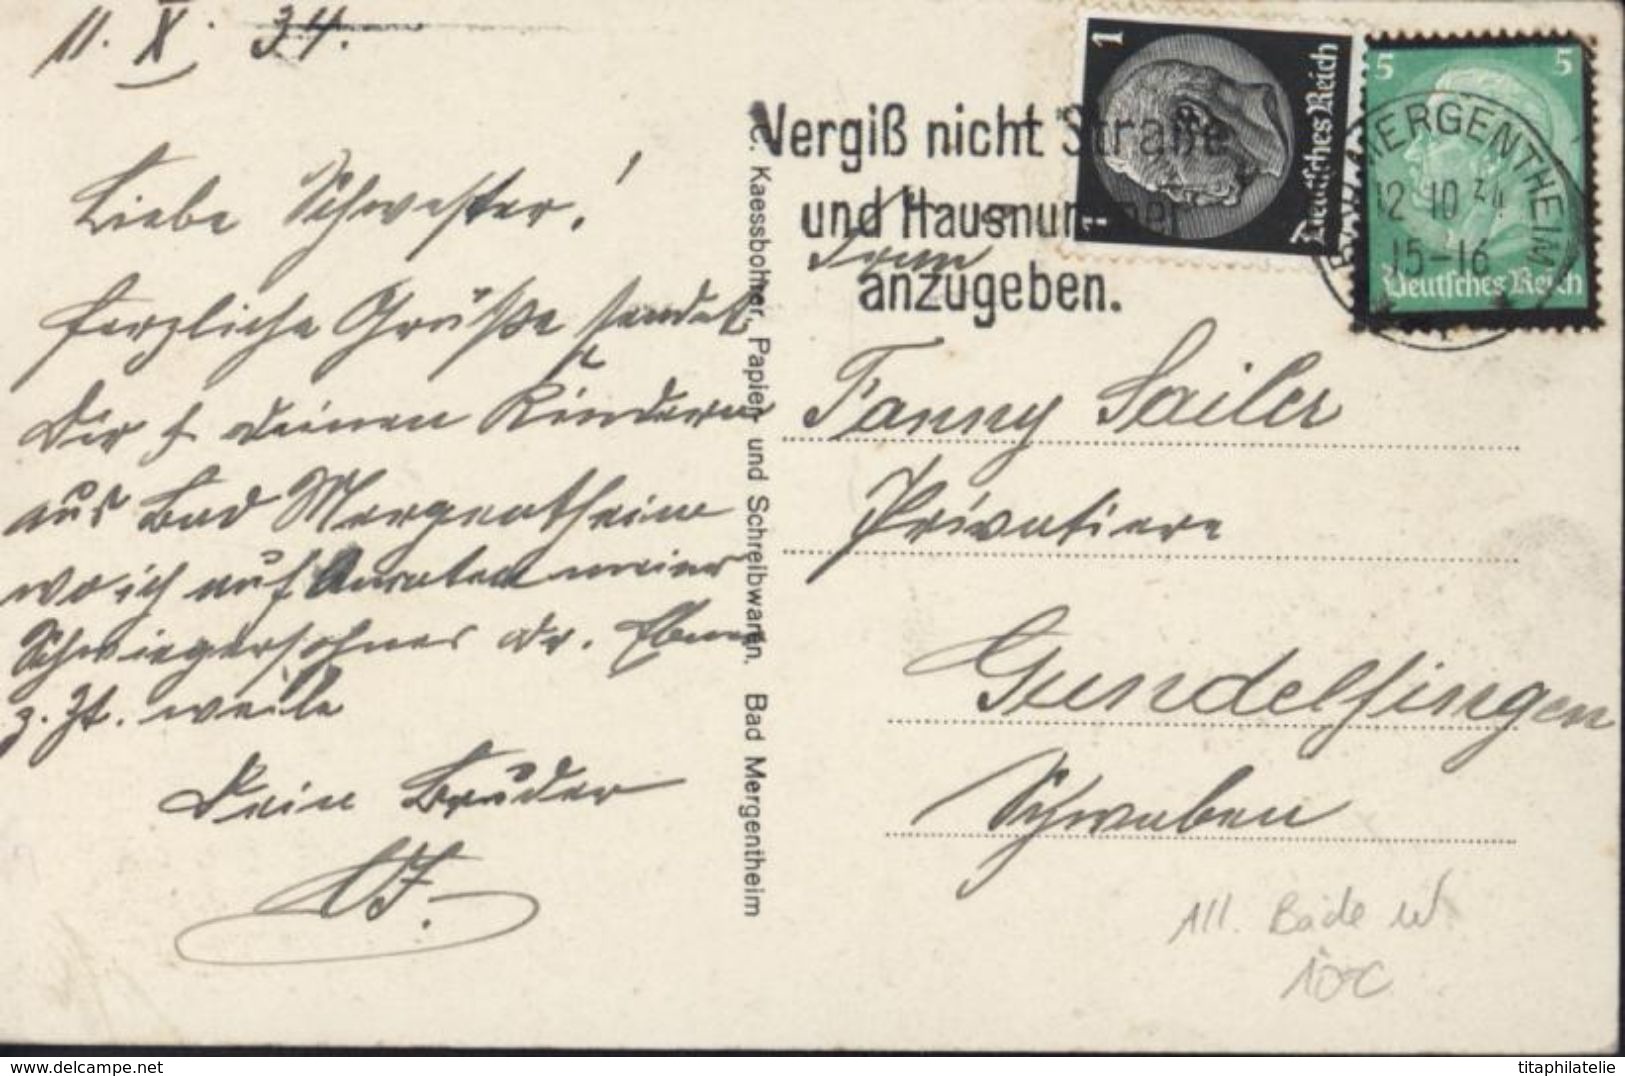 11. X. 34.
Liebe Schwester!
herzliche Grüße sendet
Dir & deinen Kindern
aus Bad Mergentheim
wo ich auf Anraten meines
Schwiegersohnes Dr.
z. Zt. weile
Dein Bruder
C. Kaessbohrer, Papier und Schreibwaren, Bad Mergentheim
Vergiß nicht Straße
und Hausnummer
anzugeben.
1 1
Deutsches Reich
5 5
Deutsches Reich
BAD MERGENTHEIM
12 10 34
15-16
Frau
Fanny Sailer
Privatiere
Gundelfingen
Schwaben
All. Bade W
10c
www.delcampe.net
titaphilatelie